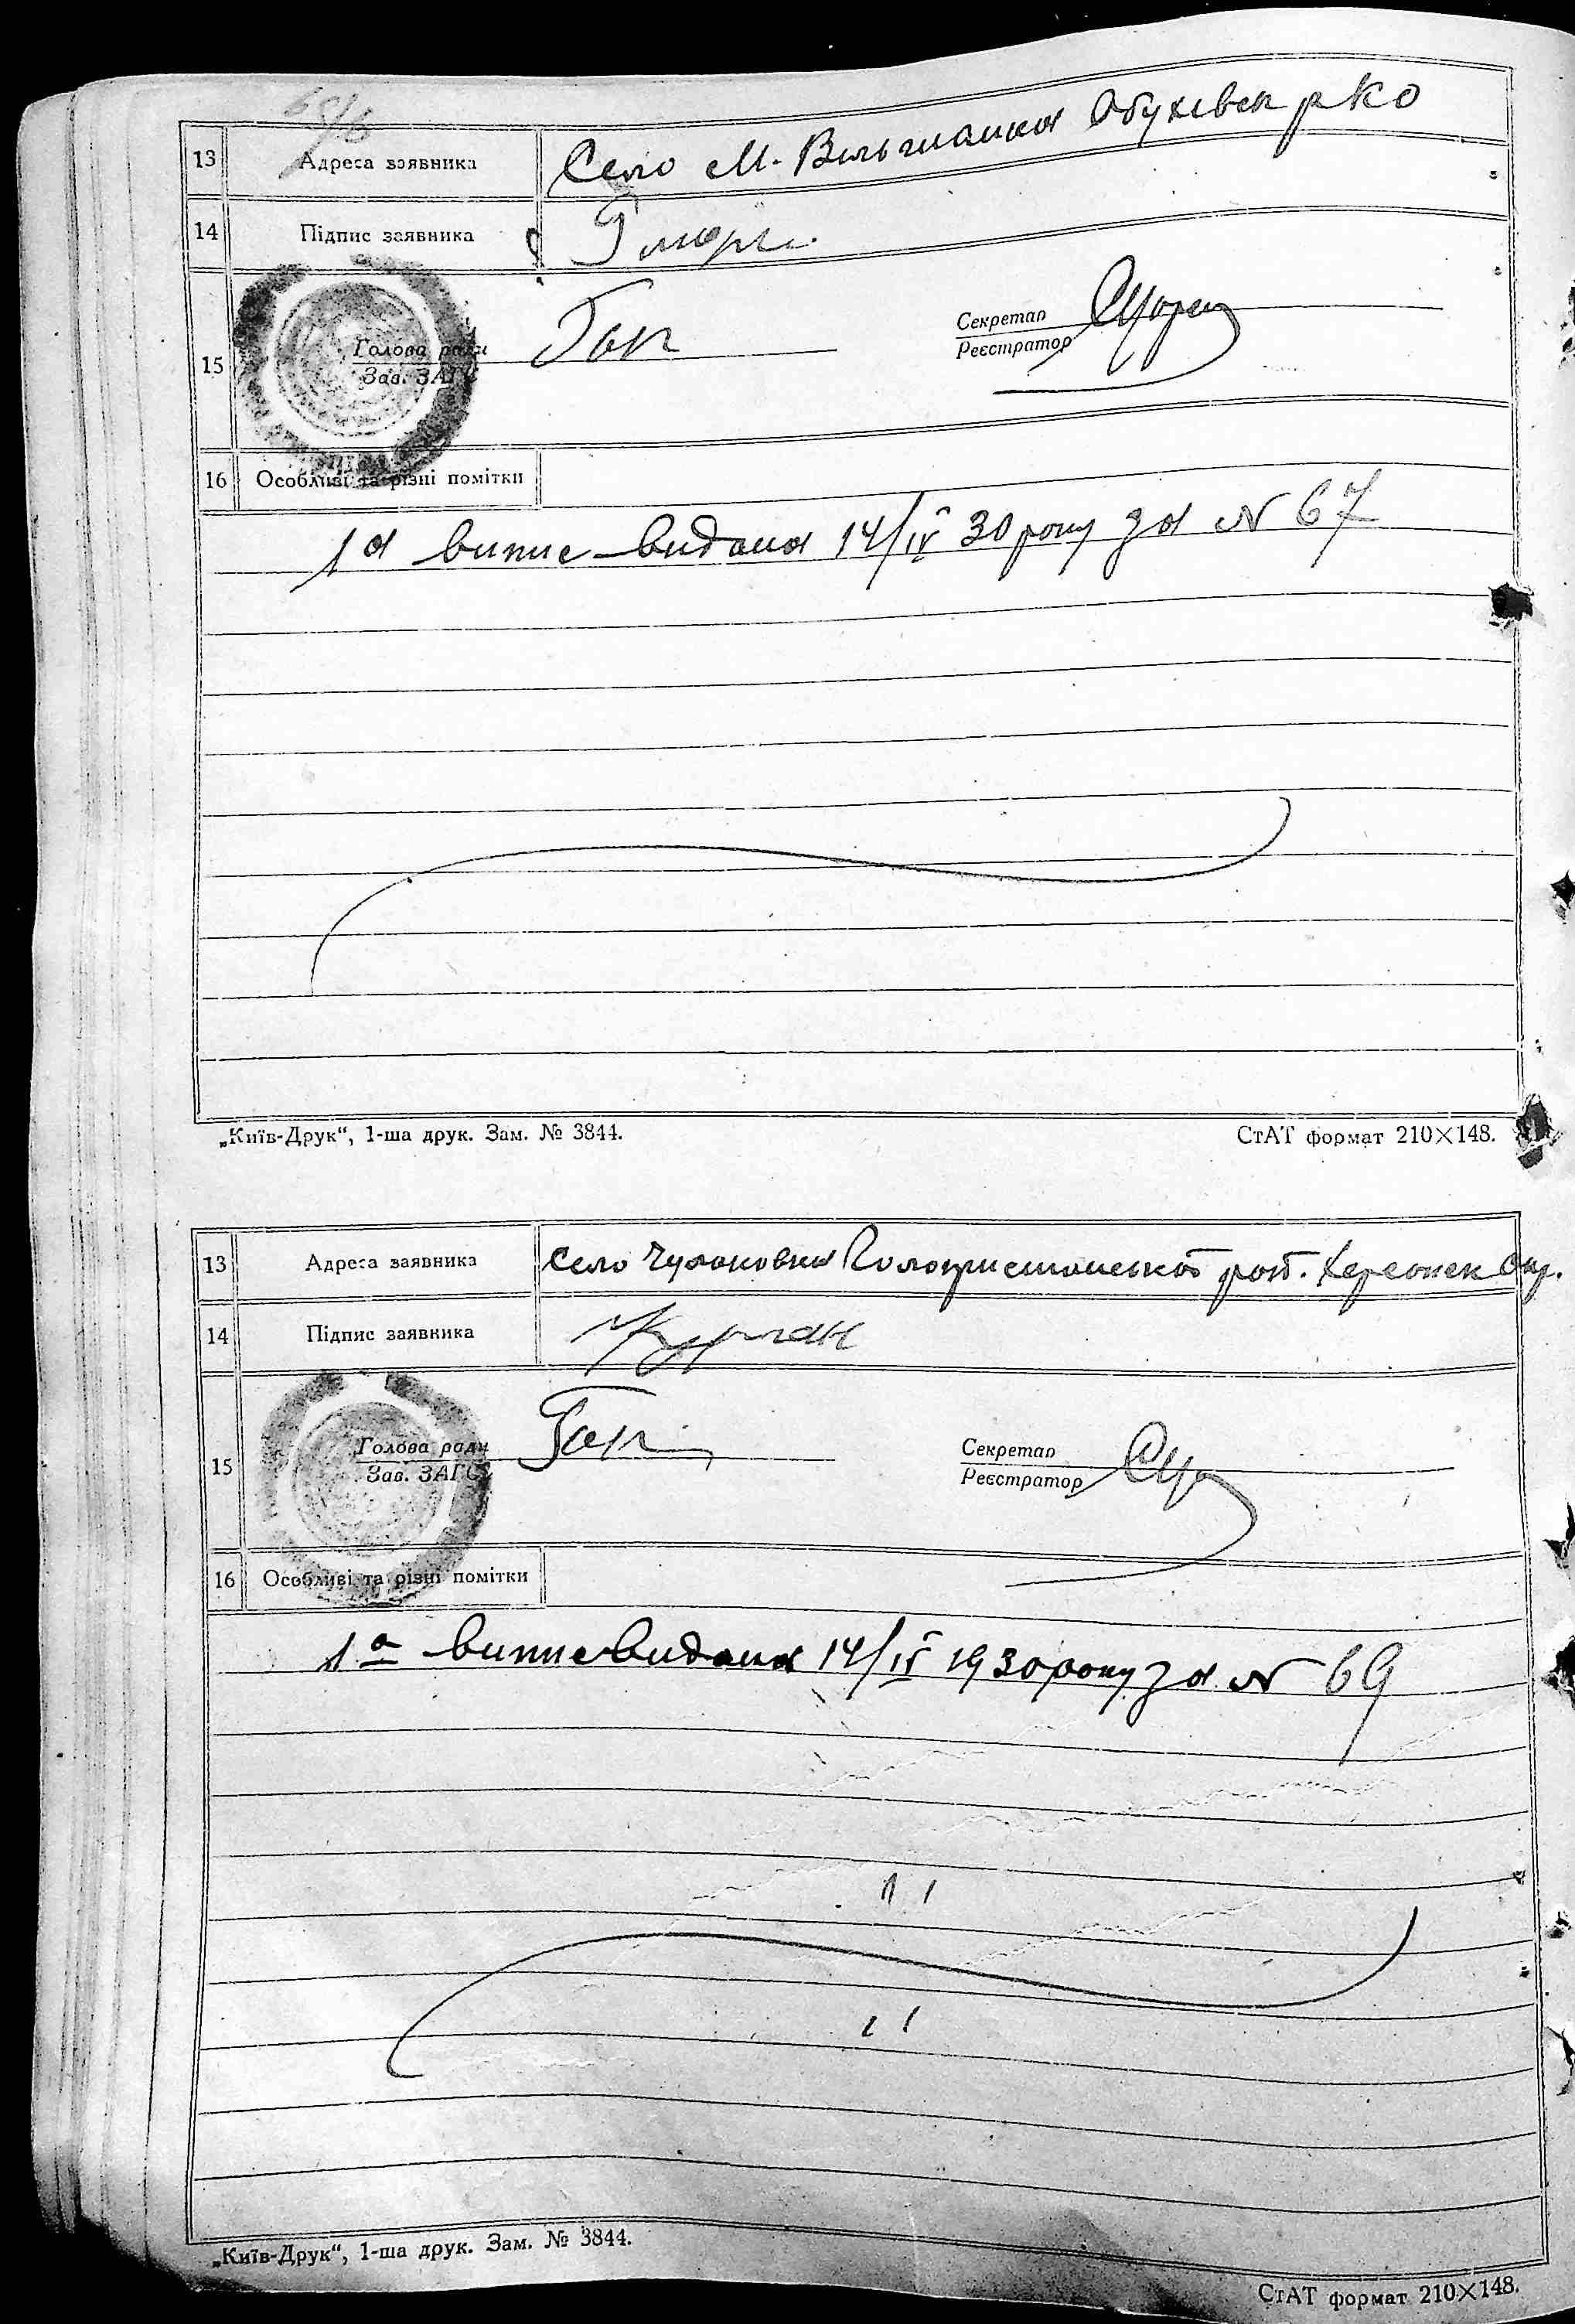 13 Адреса заявника Село М. Вільшанка Обухівськ р КО
14 Підпис заявника
15 Голова ради Секретар
Зав. ЗАГС Реєстратор
16 Особливі та різні помітки
1а випис видана 14/IV 30 року за N 67
„Київ-Друк“, 1-ша друк. Зам. № 3844. СтАТ формат 210×148.
13 Адреса заявника Село Чулаковка Голопристанської рай. Херсонськ Окр.
14 Підпис заявника
15 Голова ради Секретар
Зав. ЗАГС Реєстратор
16 Особливі та різні помітки
1а випис видана 14/IV 1930 року за N 69
„Київ-Друк“, 1-ша друк. Зам. № 3844.
СтАТ формат 210×148.